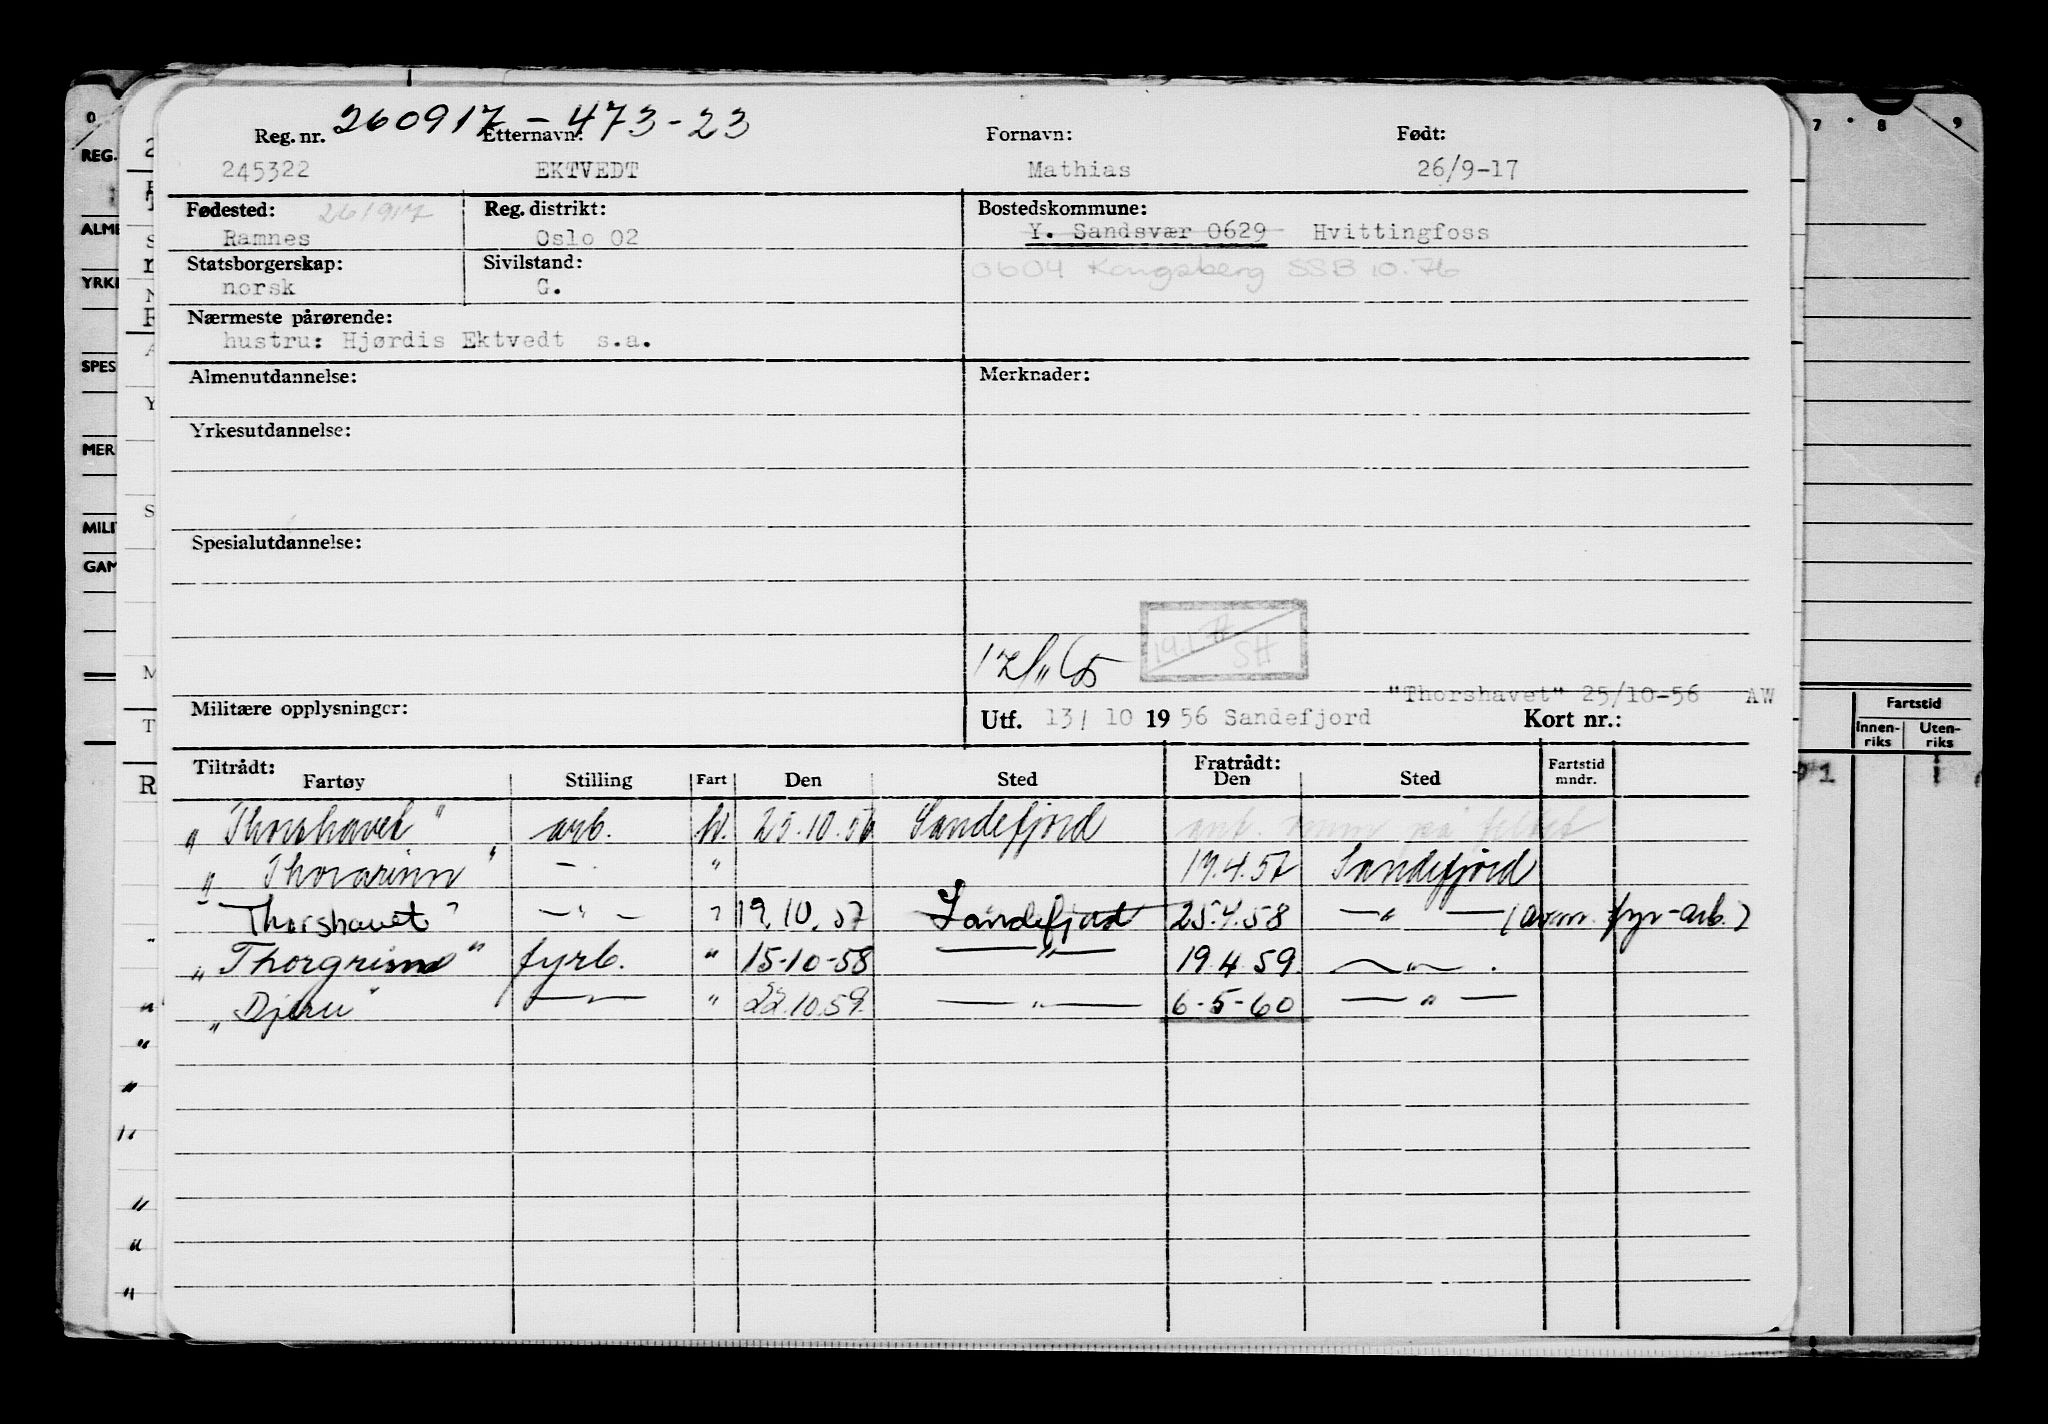 260917-473-23
Reg. nr. Etternavn: Fornavn: Født:
245322 EKTVEDT Mathias 26/9-17
Fødested: 261917 Reg. distrikt: Bostedskommune:
Ramnes Oslo 02 Y. Sandsvær 0629 Hvittingfoss
Statsborgerskap: Sivilstand: 0604 Kongsberg SSB 10.76
norsk G.
Nærmeste pårørende:
hustru: Hjørdis Ektvedt s.a.
Almenutdannelse: Merknader:
Yrkesutdannelse:
Spesialutdannelse:
SH
"Thorshavet" 25/10-56 AW
Militære opplysninger: Utf. 13/ 10 19 56 Sandefjord Kort nr.:
Tiltrådt: Fratrådt:
Fartøy Stilling Fart Den Sted Den Sted Fartstid mndr.
"Thorshavet" arb. h. 25.10.56 Sandefjord
"Thorarinn" - " 17.4.57 Sandefjord
"Thorshavet" - " - " 19.10.57 Sandefjord 25.4.58 - " - (avm. fyr-arb.)
"Thorgrim" fyrb. " 15-10-58 - " - 19.4.59 - " -
"Djerv" - " - " 22.10.59. - " - 6-5-60 - " -
0 7 8 9
REG.
ALME
YRKE
SPES
MER
MILI
GAM
Fartstid
Innen-riks Uten-riks